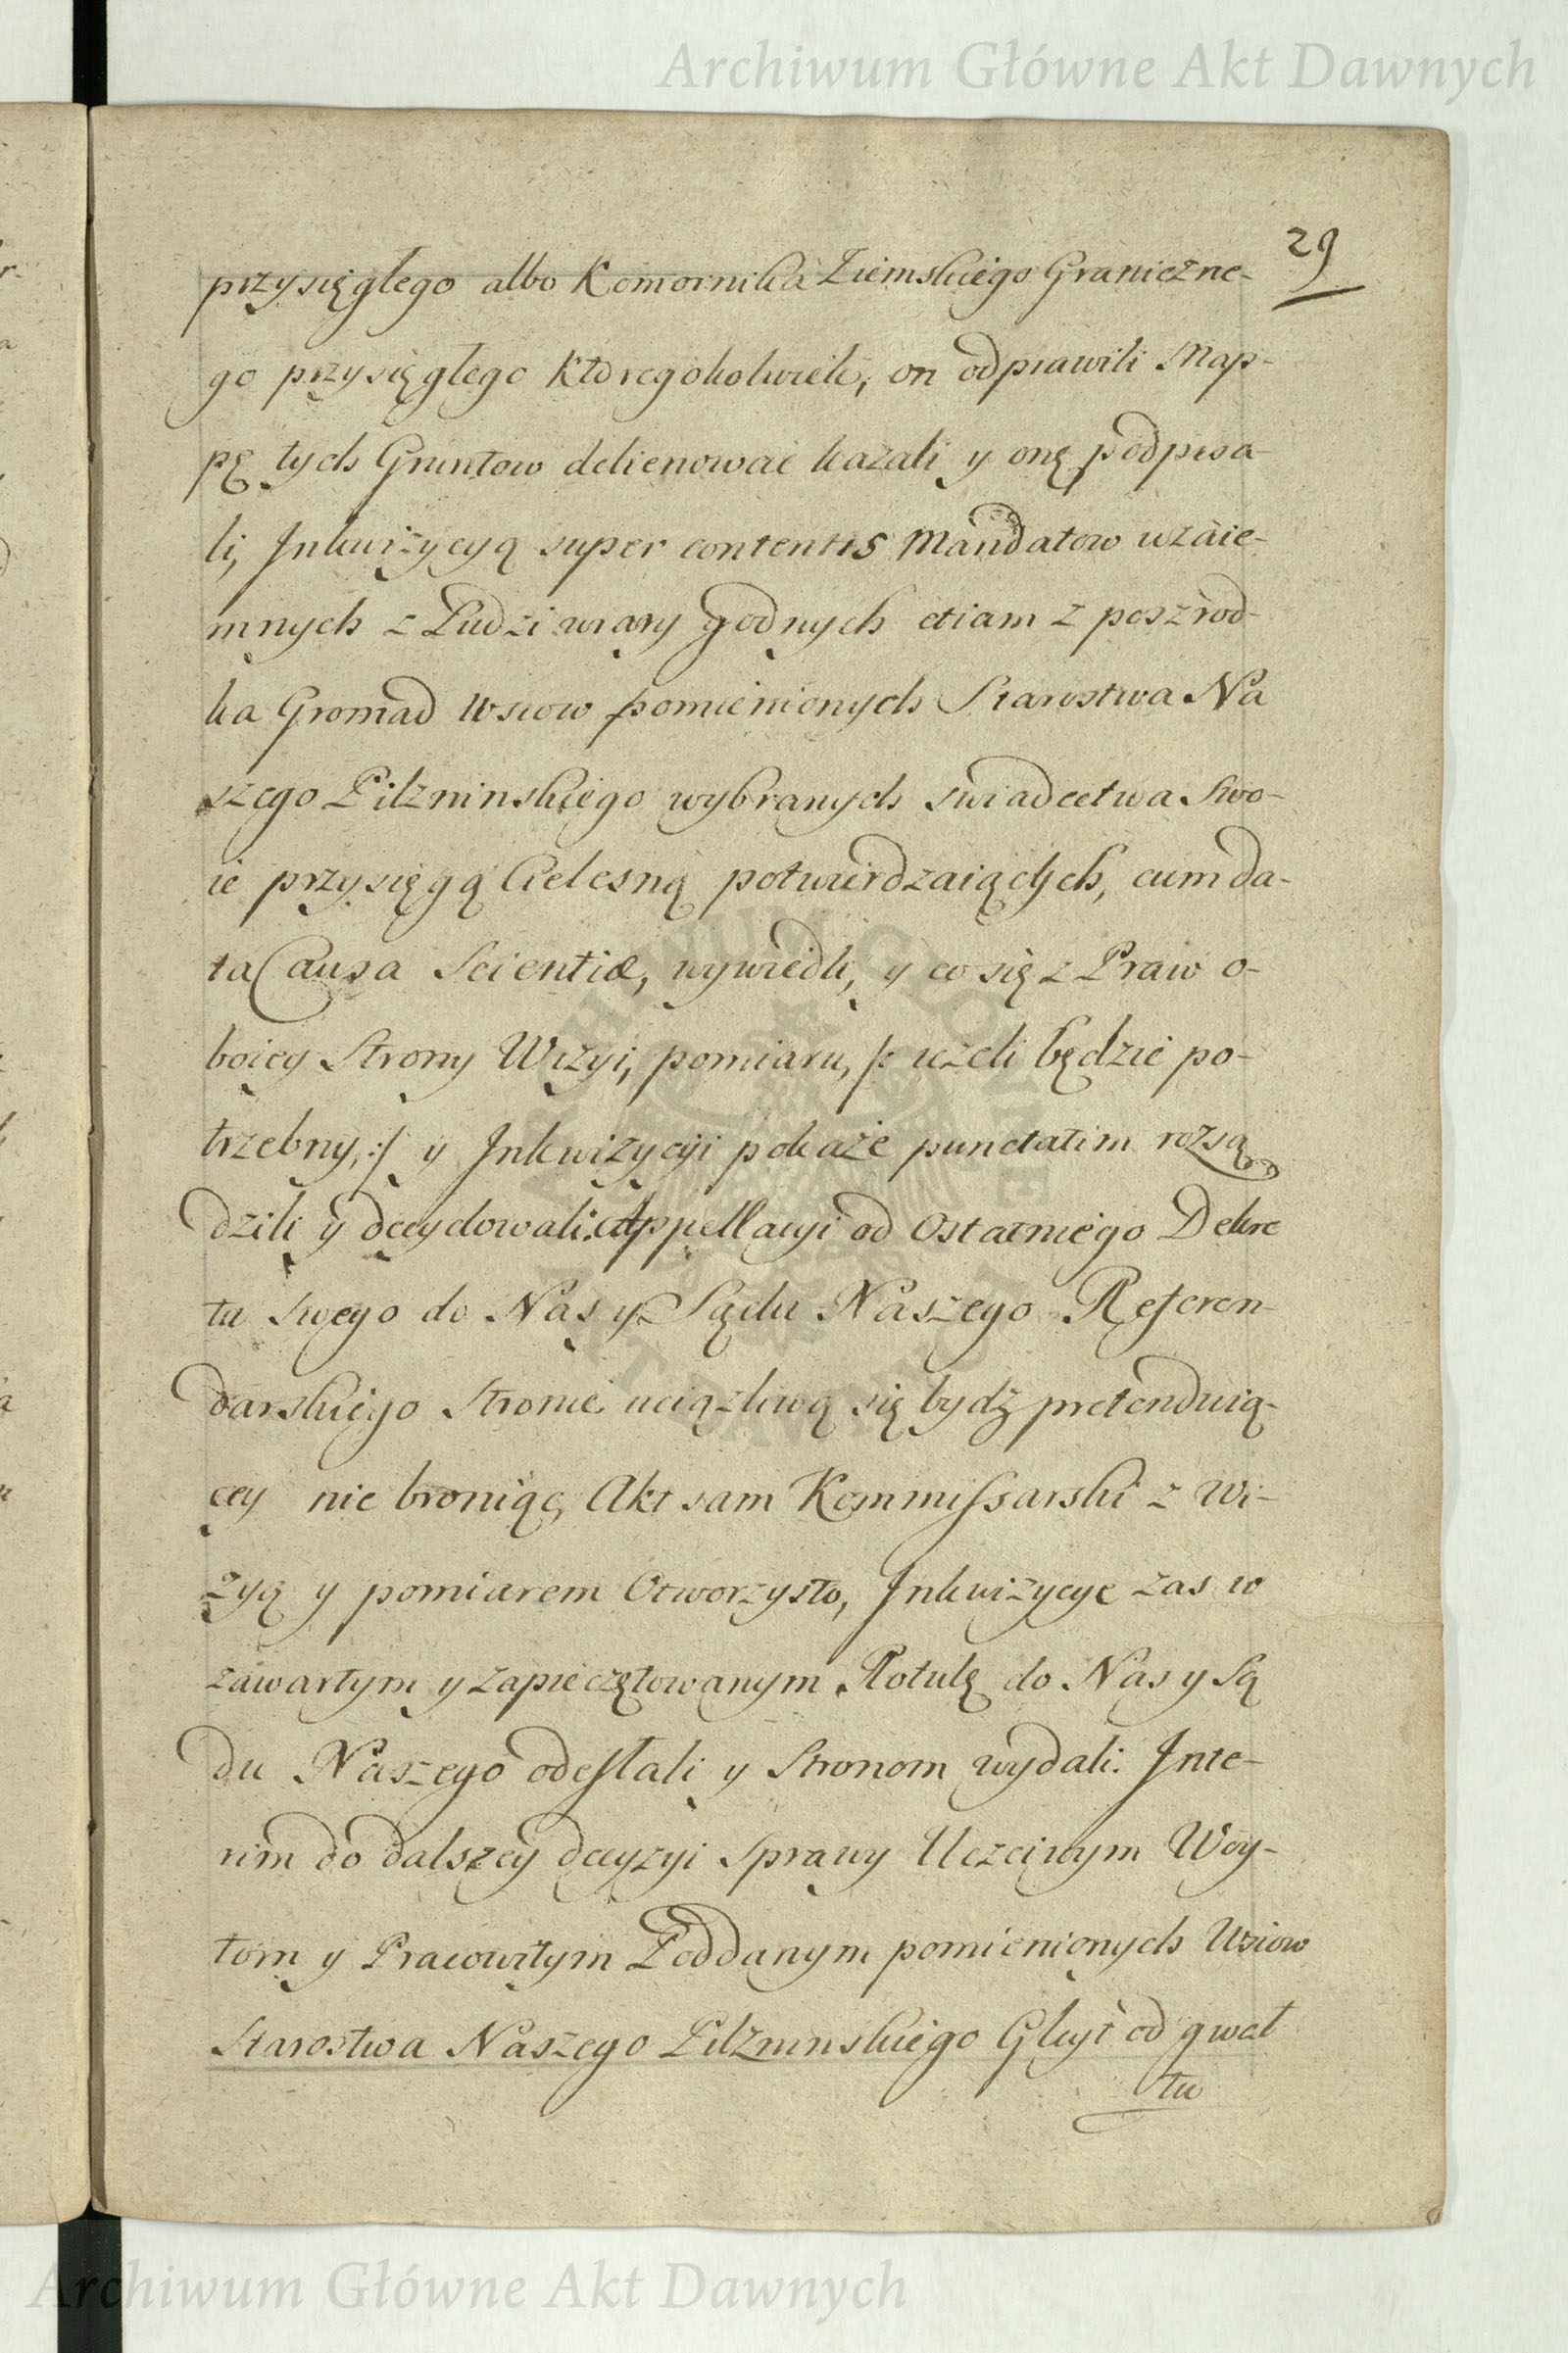 Archiwum Główne Akt Dawnych
29
przysięgłego albo Komornika Ziemskiego Graniczne-
go przysięgłego Ktoregokolwiek, on odprawili Map-
pę tych Gruntow delienować kazali y onę podpisa-
li, Inkwizycyą super contentis Mandatow wzaie-
mnych z Ludzi wiary godnych etiam z poszrod-
ka Gromad Wsiow pomienionych Starostwa Na
szego Pilzninskiego wybranych swiadectwa Swo-
ie przysięgą Cielesną potwierdzaiących, cum da-
ta Causa Scientiæ, wywiedli, y co się z Praw o-
boiey Strony Wizyi, pomiaru, /: ieżeli będzie po-
trzebny, :/ y Inkwizycyi pokaże punctatim rozsą
dzili y decydowali. Appellacyi od Ostatniego Dekre
tu Swego do Nas y Sądu Naszego Referen-
darskiego Stronie uciązliwą się bydź pretenduią-
cey nie broniąc, Akt sam Kommissarski z Wi-
zyą y pomiarem Otworzysto, Inkwizycye zas w
zawartym y zapieczętowanym Rotulę do Nas y Są
du Naszego odesłali y Stronom wydali. Inte-
rim do dalszey decyzyi Sprawy Uczciwym Woy-
tom y Pracowitym Poddanym pomienionych Wsiow
Starostwa Naszego Pilzninskiego Gleyt od gwał
tu
Archiwum Główne Akt Dawnych